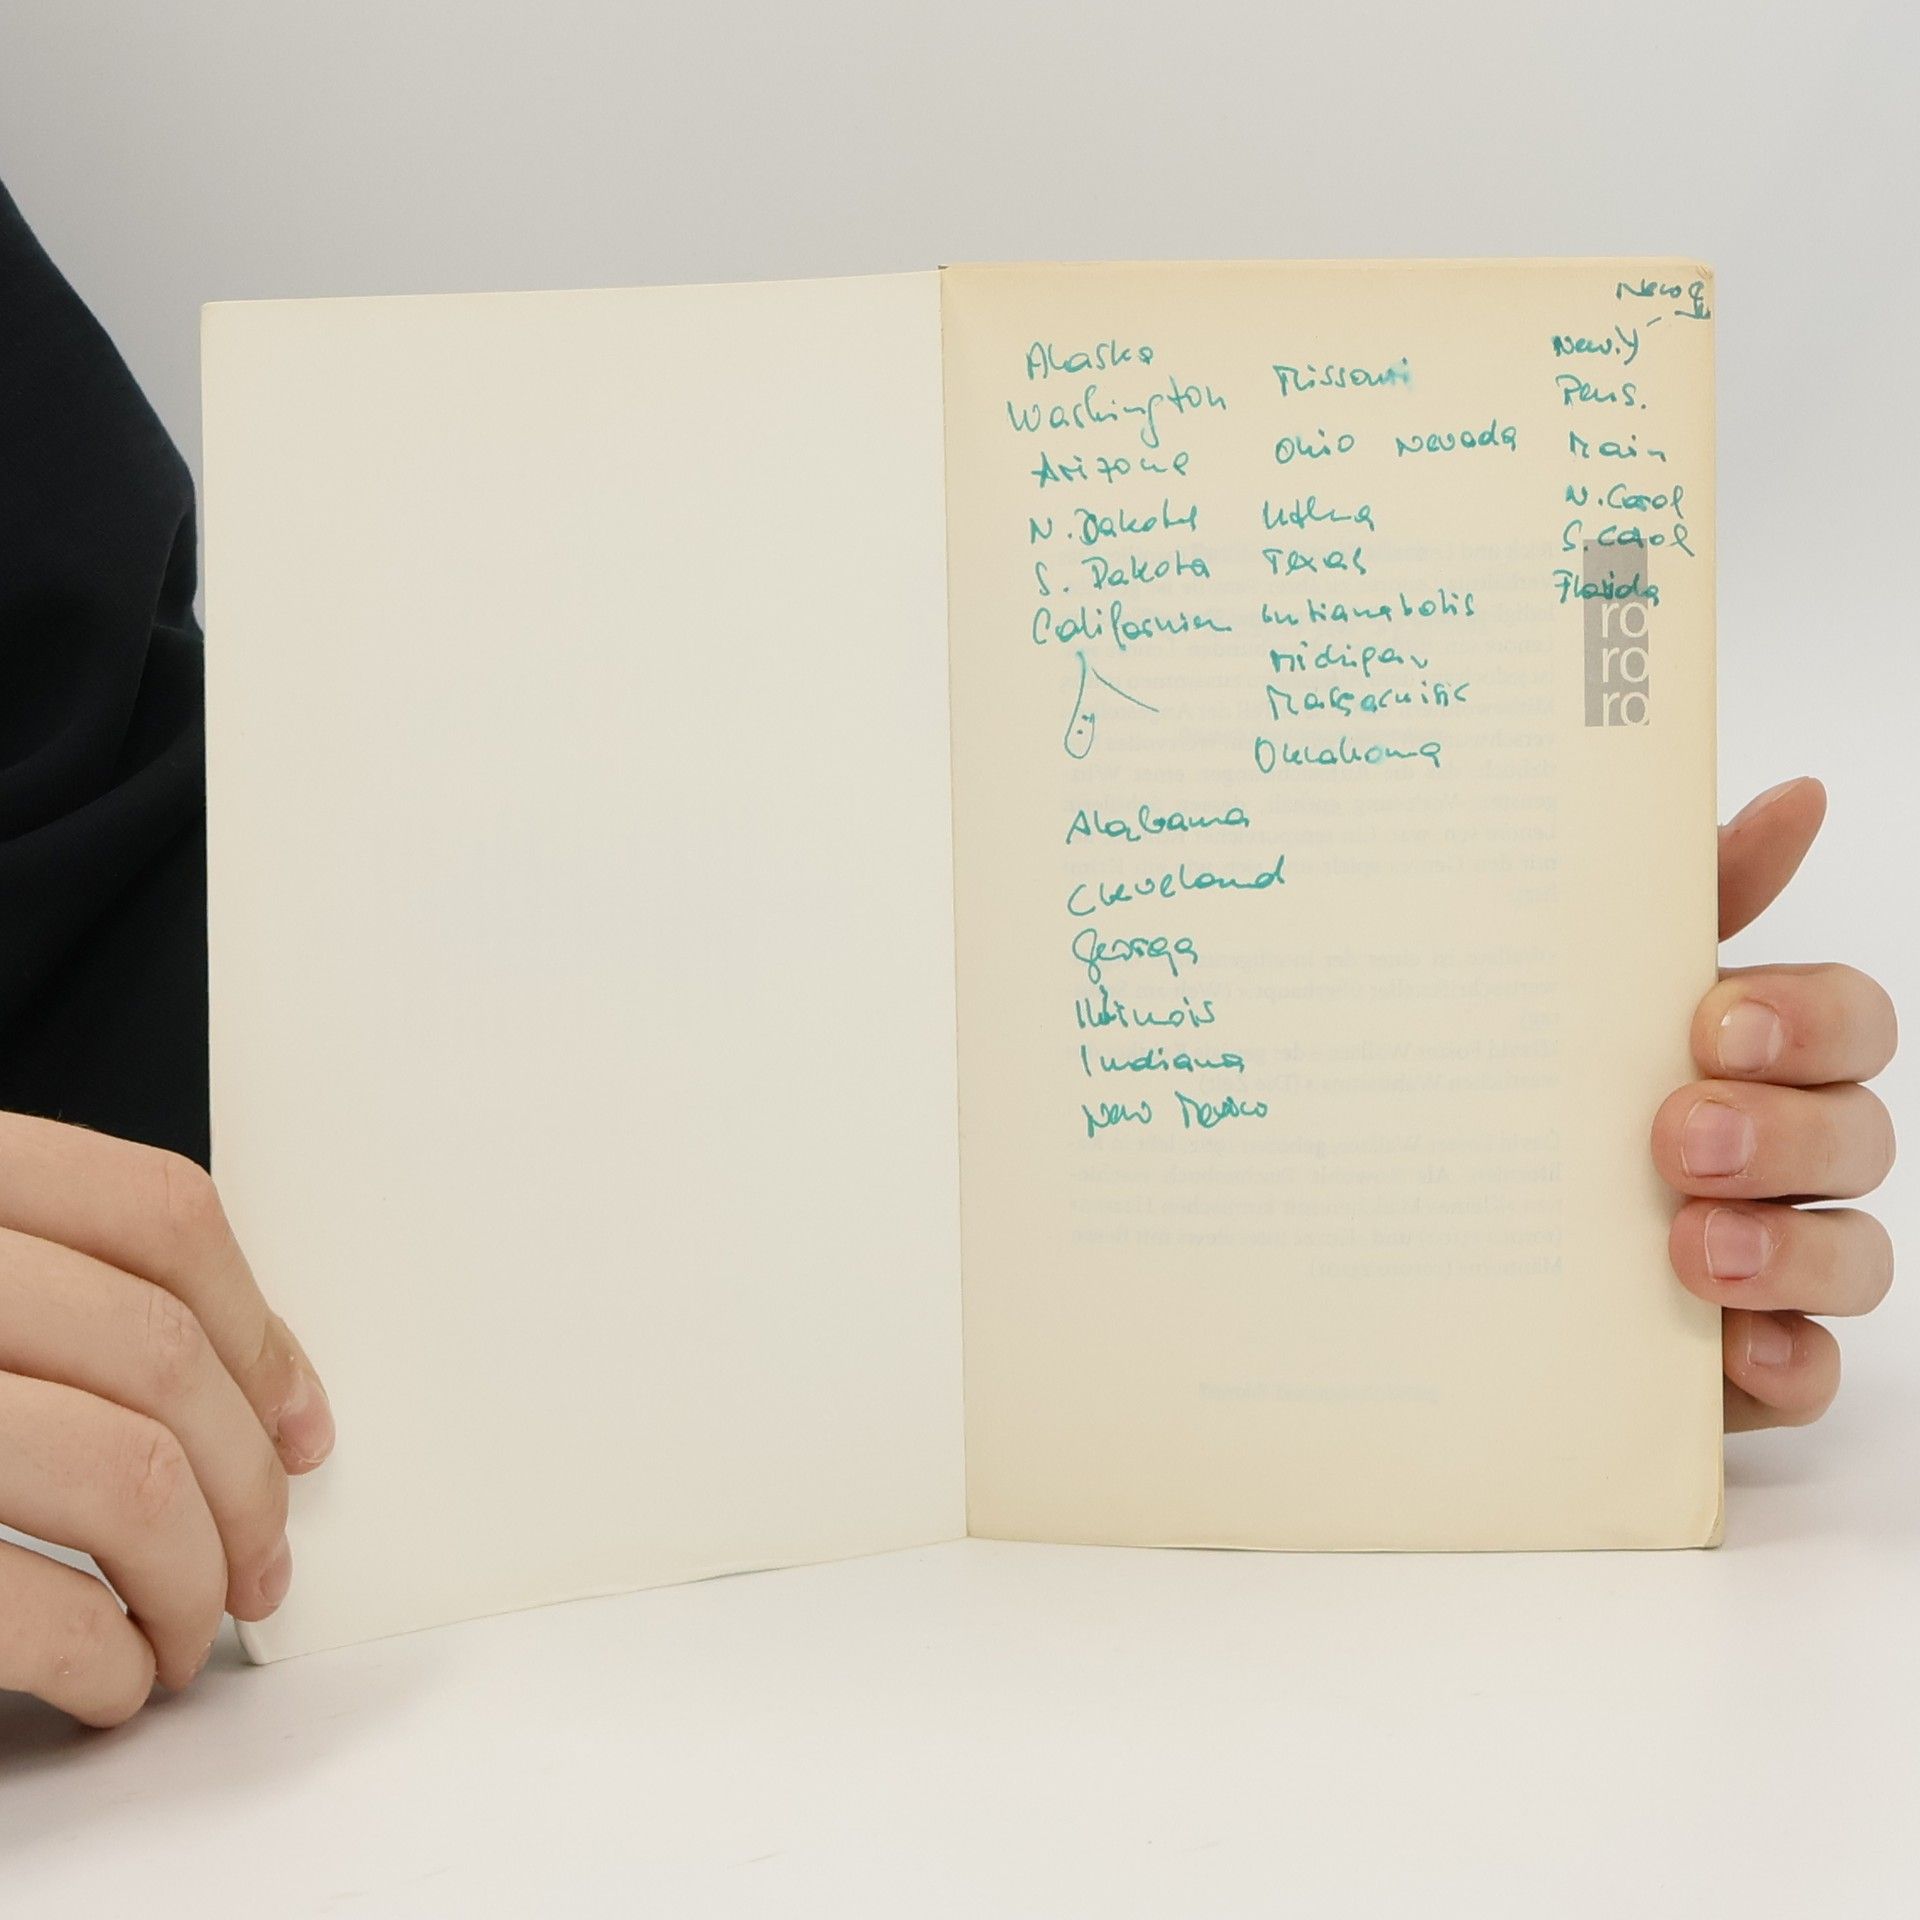 Alaska
Washington
Arizona
N. Dakota
S. Dakota
Californien
Missouri
Ohio Nevada
Utha
Texas
Intianabolis
Michigan
Massachuisic
Oklahoma
Alabama
Cleveland
Georga
Illinois
Indiana
New Mexico
New
New.Y
Pens.
Main
N. Carol
S. Carol
Florida
ro
ro
ro